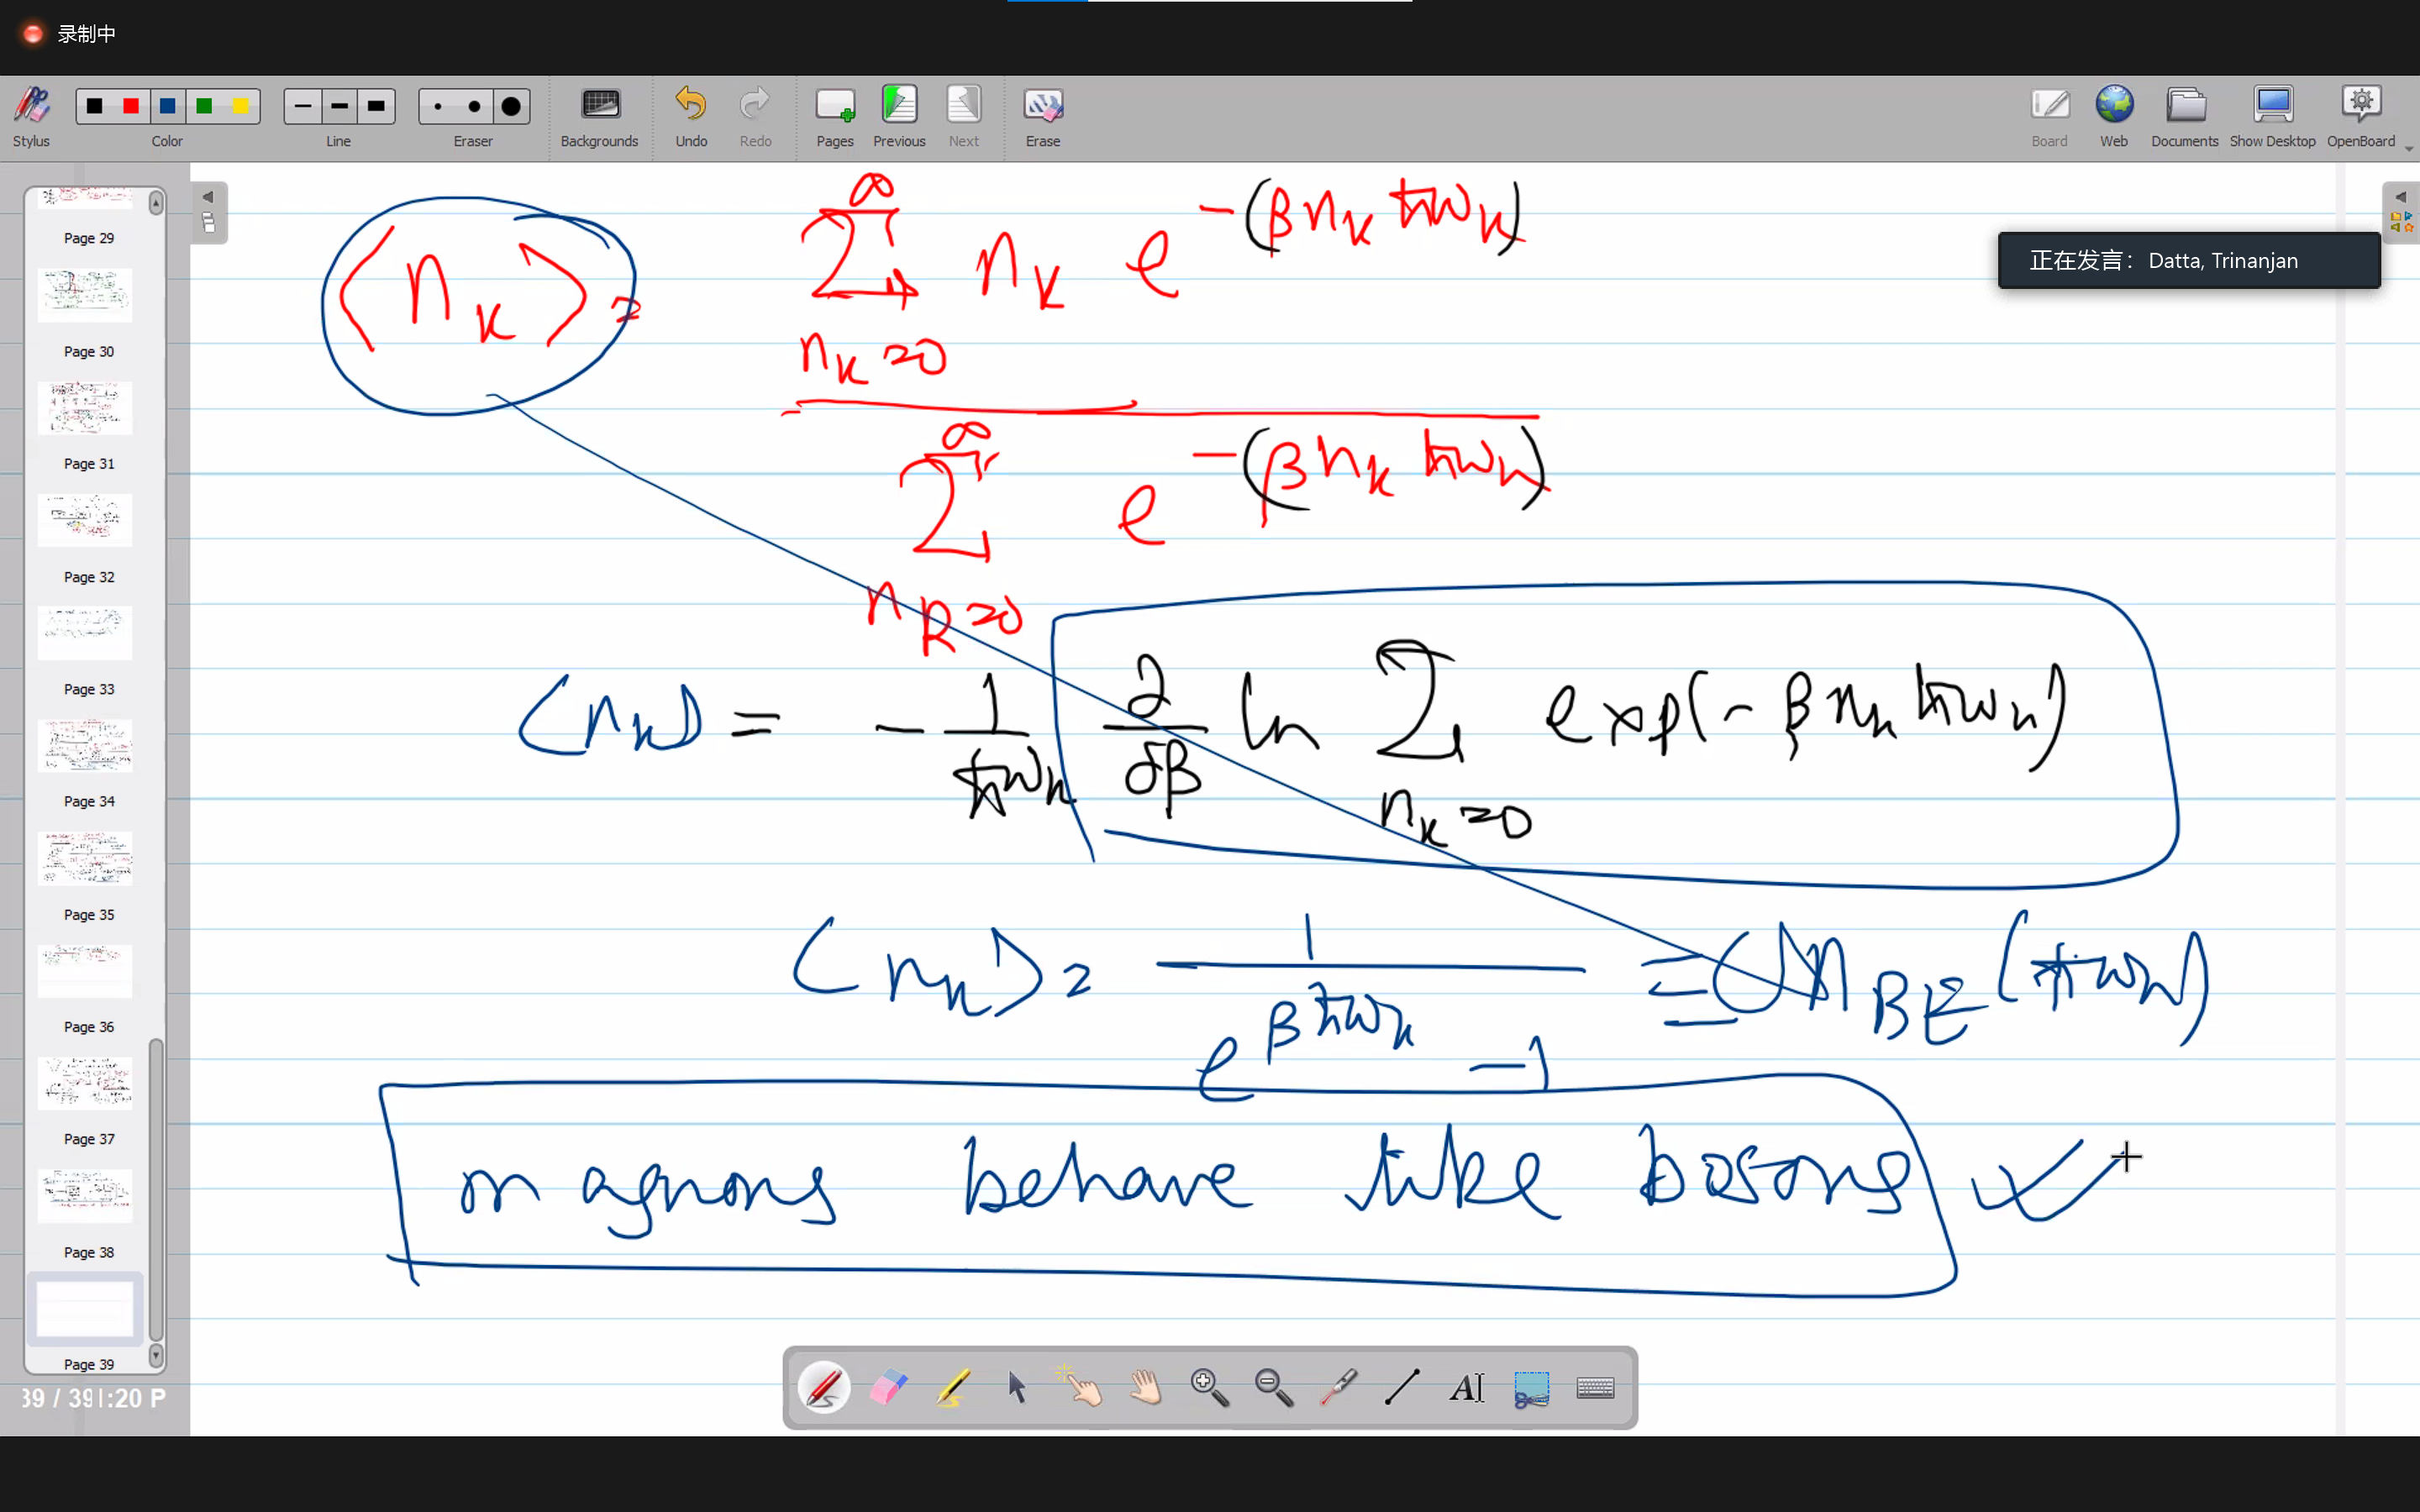 录制中
Stylus Color Line Eraser Backgrounds Undo Redo Pages Previous Next Erase Board Web Documents Show Desktop OpenBoard
正在发言: Datta, Trinanjan
Page 29
Page 30
Page 31
Page 32
Page 33
Page 34
Page 35
Page 36
Page 37
Page 38
Page 39
39 / 39
:20 P
⟨n_k⟩ = ∑_{n_k=0}^{∞} n_k e^{-(βn_kħω_k)} / ∑_{n_k=0}^{∞} e^{-(βn_kħω_k)}
⟨n_k⟩ = -1/ħω_k ∂/∂β ln ∑_{n_k=0} exp(-βn_kħω_k)
⟨n_k⟩ = 1/(e^{βħω_k} -1) ≡ n_{BE}(ħω_k)
magnons behave like bosons
AI